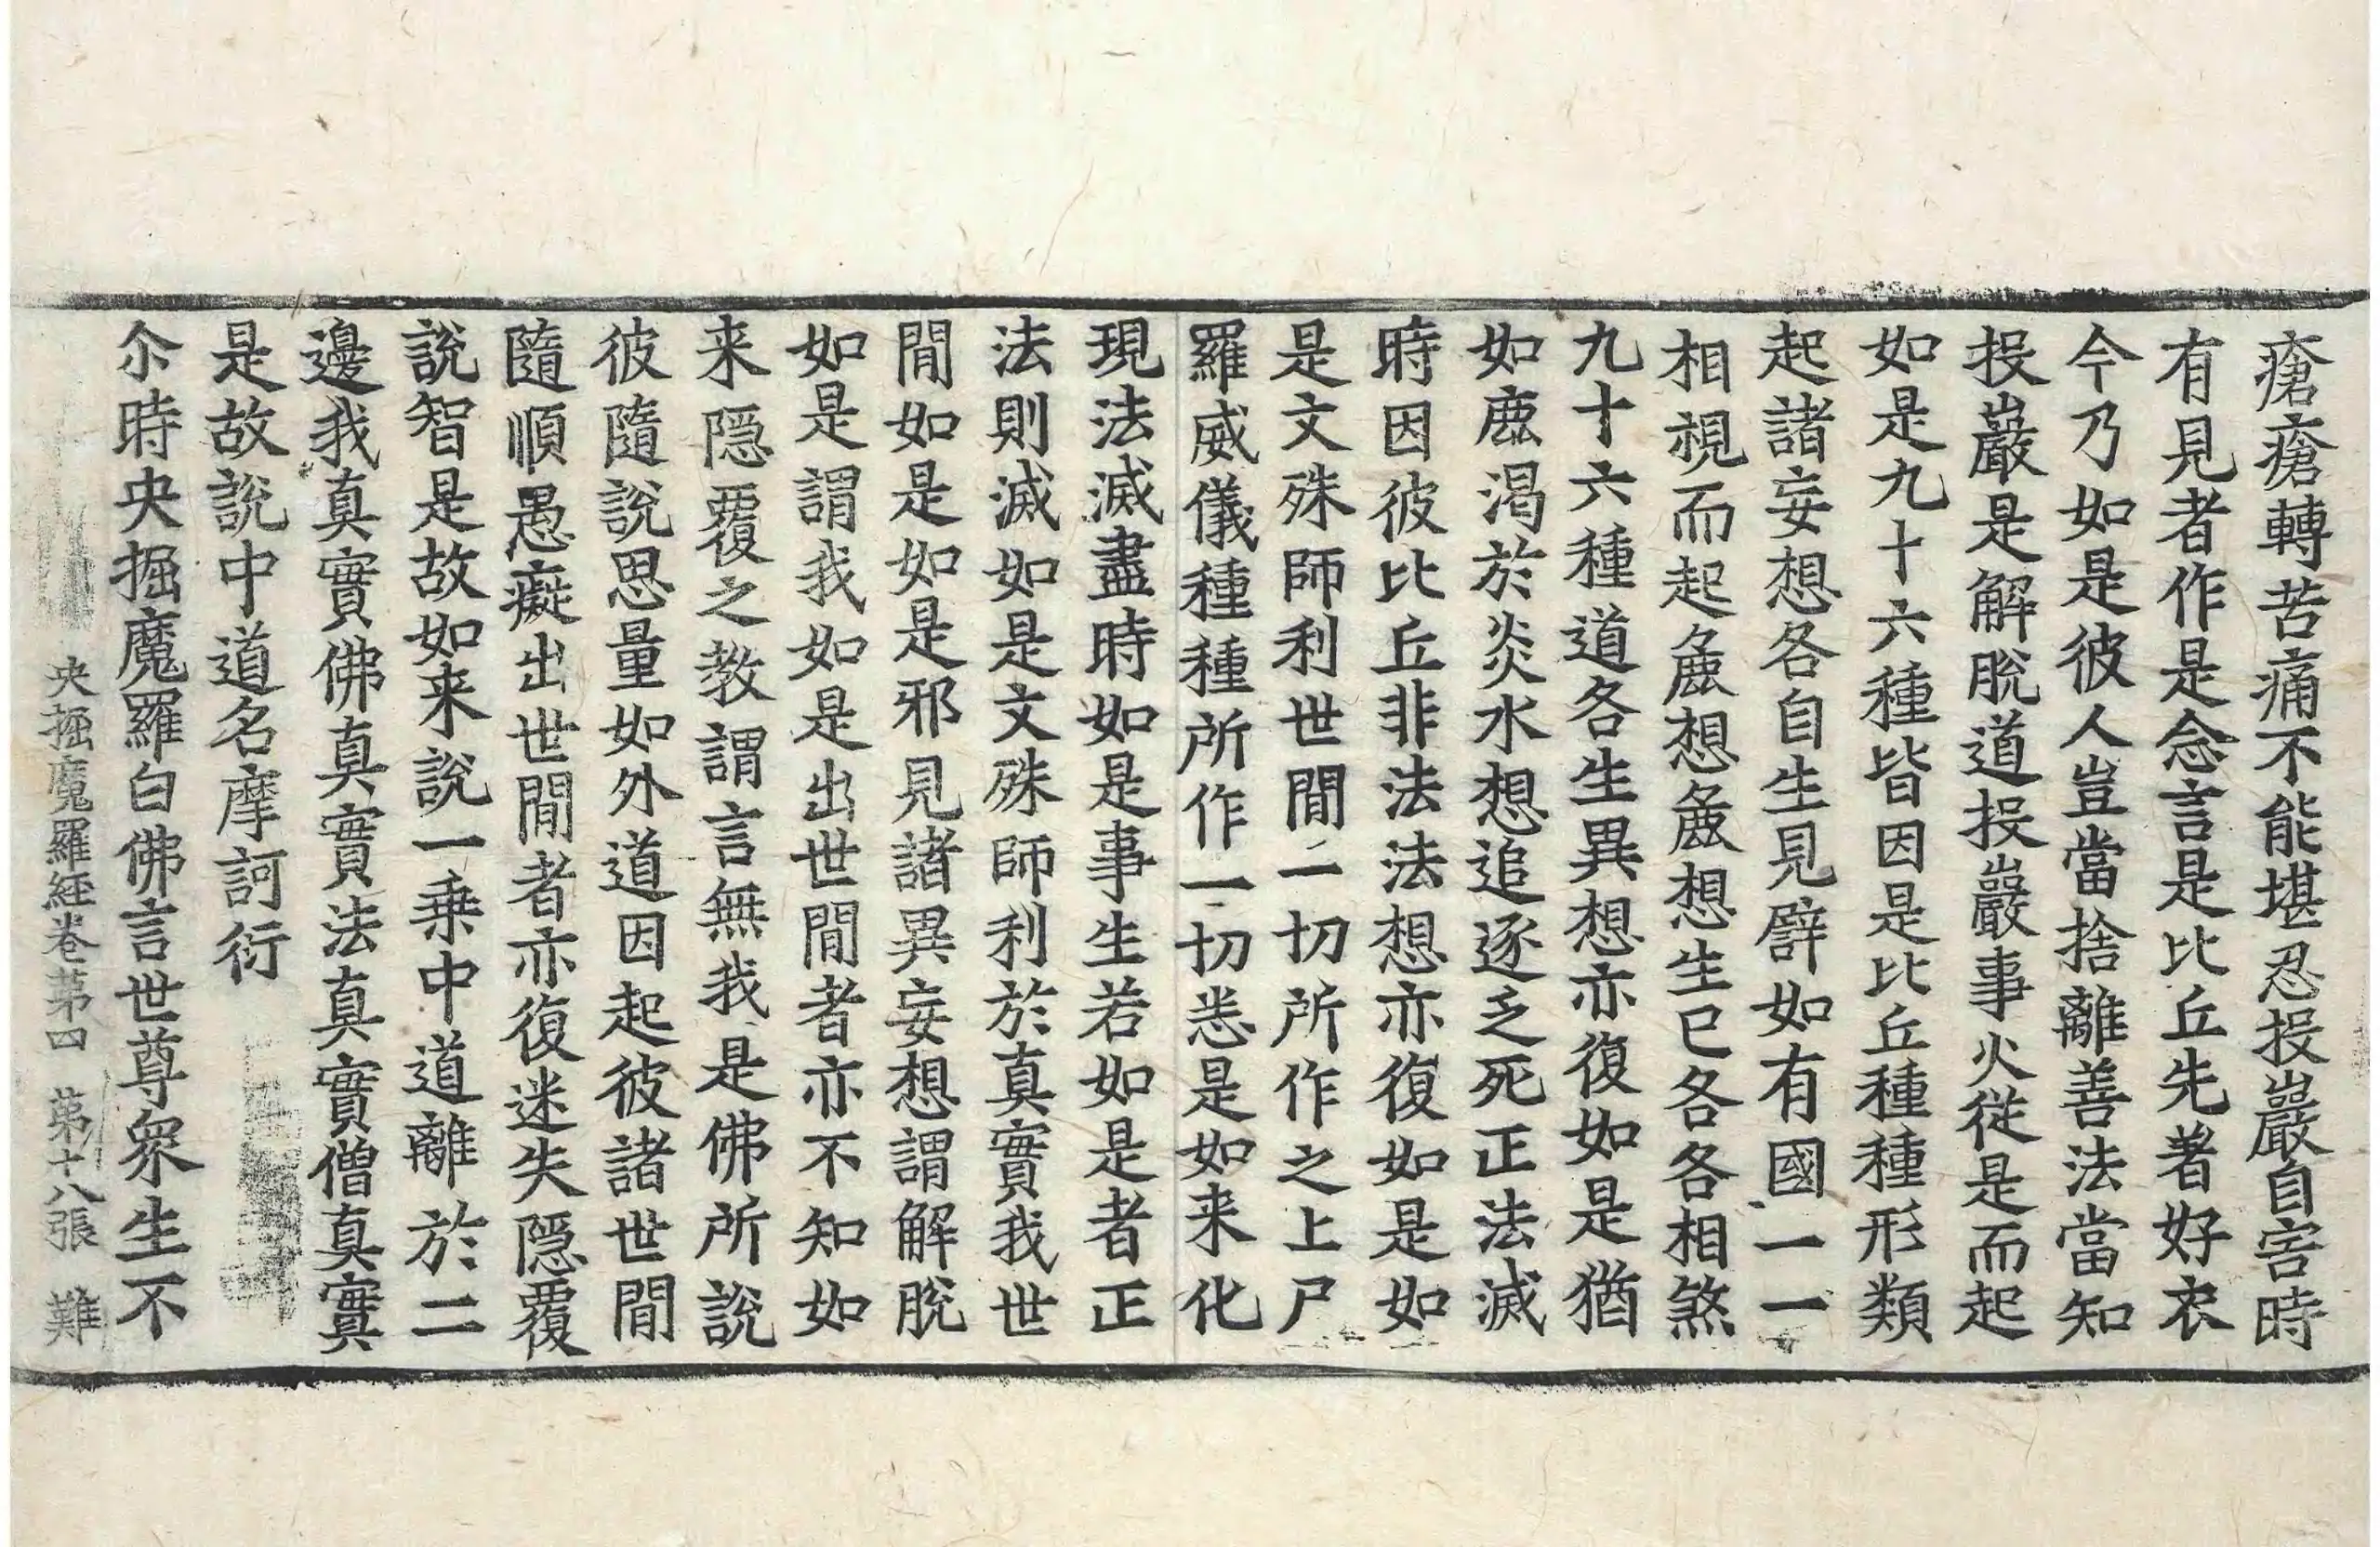 瘡瘡轉苦痛不能堪忍投巖自害時
有見者作是念言是比丘先著好衣
今乃如是彼人豈當捨離善法當知
投巖是解脫道投巖事火從是而起
如是九十六種皆因是比丘種種形類
起諸妄想各自生見譬如有國一一
相視而起麁想麁想生已各各相煞
九十六種道各生異想亦復如是猶
如鹿渴於炎水想追逐乏死正法滅
時因彼比丘非法法想亦復如是如
是文殊師利世閒一切所作之上尸
羅威儀種種所作一切悉是如来化
現法滅盡時如是事生若如是者正
法則滅如是文殊師利於真實我世
閒如是如是邪見諸異妄想謂解脫
如是謂我如是出世閒者亦不知如
来隱覆之教謂言無我是佛所說
彼隨說思量如外道因起彼諸世閒
隨順愚癡出世閒者亦復迷失隱覆
說智是故如来說一乗中道離於二
邊我真實佛真實法真實僧真實
是故說中道名摩訶衍
尒時央掘魔羅白佛言世尊衆生不
央掘魔羅経卷苐四 苐十八張 難